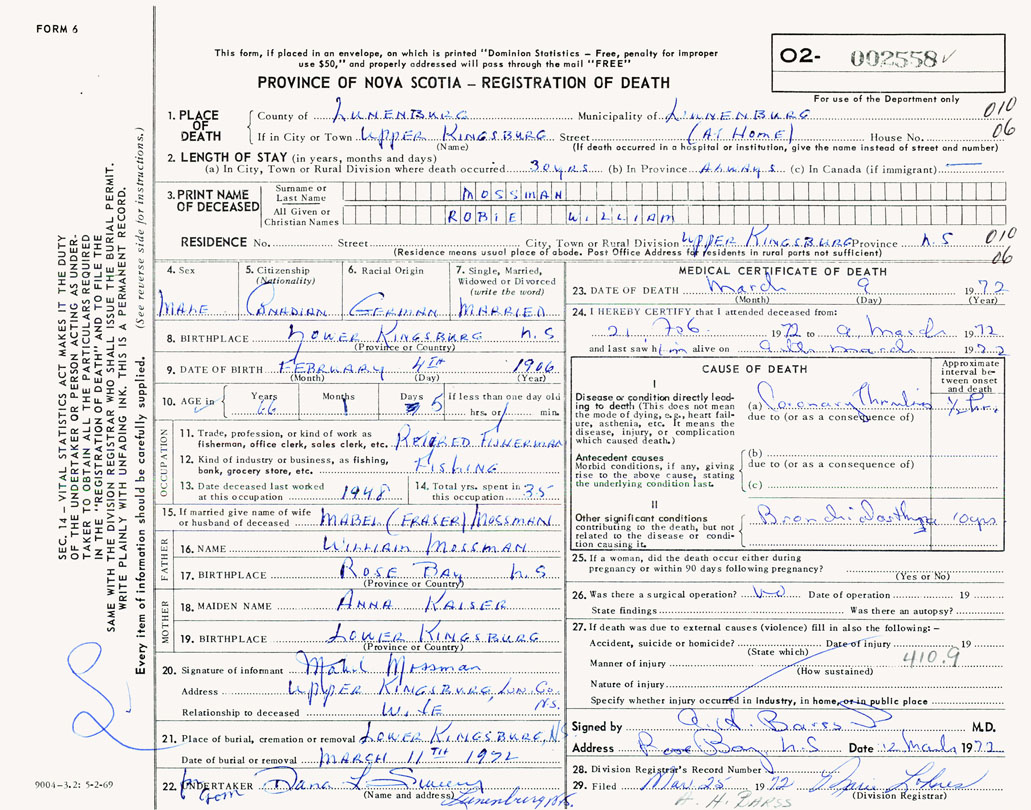 FORM 6
This form, if placed in an envelope, on which is printed "Dominion Statistics – Free, penalty for improper
use $50," and properly addressed will pass through the mail "FREE"
PROVINCE OF NOVA SCOTIA – REGISTRATION OF DEATH
O2- 002558
For use of the Department only
010
06
1. PLACE OF DEATH
County of LUNENBURG Municipality of LUNENBURG
If in City or Town UPPER KINGSBURG Street (At Home) House No.
(Name) (If death occurred in a hospital or institution, give the name instead of street and number)
2. LENGTH OF STAY (in years, months and days)
(a) In City, Town or Rural Division where death occurred 30 yrs (b) In Province Always (c) In Canada (if immigrant) —
3. PRINT NAME OF DECEASED
Surname or Last Name MOSSMAN
All Given or Christian Names ROBIE WILLIAM
RESIDENCE No. Street City, Town or Rural Division Upper KINGSBURG Province N.S 010
06
(Residence means usual place of abode. Post Office Address for residents in rural parts not sufficient)
4. Sex
MALE
5. Citizenship (Nationality)
CANADIAN
6. Racial Origin
GERMAN
7. Single, Married, Widowed or Divorced (write the word)
MARRIED
8. BIRTHPLACE LOWER KINGSBURG N.S
(Province or Country)
9. DATE OF BIRTH FEBRUARY 4TH 1906
(Month) (Day) (Year)
10. AGE in Years 66 Months 1 Days 5 if less than one day old
hrs. or min.
OCCUPATION
11. Trade, profession, or kind of work as fisherman, office clerk, sales clerk, etc. RETIRED FISHERMAN
12. Kind of industry or business, as fishing, bank, grocery store, etc. FISHING
13. Date deceased last worked at this occupation 1948
14. Total yrs. spent in this occupation 35
15. If married give name of wife or husband of deceased MABEL (FRASER) MOSSMAN
FATHER
16. NAME WILLIAM MOSSMAN
17. BIRTHPLACE ROSE BAY N.S
(Province or Country)
MOTHER
18. MAIDEN NAME ANNA KAISER
19. BIRTHPLACE LOWER KINGSBURG
(Province or Country)
20. Signature of informant Mabel Mossman
Address UPPER KINGSBURG, LUN. Co. NS.
Relationship to deceased WIFE
21. Place of burial, cremation or removal LOWER KINGSBURG, NS
Date of burial or removal MARCH 11TH 1972
22. UNDERTAKER Dana L
(Name and address) Lunenburg
MEDICAL CERTIFICATE OF DEATH
23. DATE OF DEATH March 9 1972
(Month) (Day) (Year)
24. I HEREBY CERTIFY that I attended deceased from:
21 Feb 1972 to 9 March 1972
and last saw him alive on 9th March 1972
CAUSE OF DEATH
Approximate interval between onset and death
I
Disease or condition directly leading to death (This does not mean the mode of dying, e.g., heart failure, asthenia, etc. It means the disease, injury, or complication which caused death.)
(a) Coronary Thrombosis ½ hr.
due to (or as a consequence of)
Antecedent causes
Morbid conditions, if any, giving rise to the above cause, stating the underlying condition last.
(b)
due to (or as a consequence of)
(c)
II
Other significant conditions contributing to the death, but not related to the disease or condition causing it.
10 yrs
25. If a woman, did the death occur either during pregnancy or within 90 days following pregnancy?
(Yes or No)
26. Was there a surgical operation? No Date of operation 19
State findings Was there an autopsy?
27. If death was due to external causes (violence) fill in also the following: –
Accident, suicide or homicide? Date of injury 19
(State which)
410.9
Manner of injury
(How sustained)
Nature of injury
Specify whether injury occurred in Industry, in home, or in public place
Signed by A. H. Barss M.D.
Address Rose Bay N.S Date 12 March 1972
28. Division Registrar's Record Number
29. Filed Mar 25 1972
(Division Registrar)
A. H. BARSS
SEC. 14 – VITAL STATISTICS ACT MAKES IT THE DUTY
OF THE UNDERTAKER OR PERSON ACTING AS UNDERTAKER TO OBTAIN ALL THE PARTICULARS REQUIRED
IN THE "REGISTRATION OF DEATH" AND TO FILE THE
SAME WITH THE DIVISION REGISTRAR WHO SHALL ISSUE THE BURIAL PERMIT.
WRITE PLAINLY WITH UNFADING INK. THIS IS A PERMANENT RECORD.
Every item of information should be carefully supplied. (See reverse side for instructions.)
9004–3.2: 5-2-69